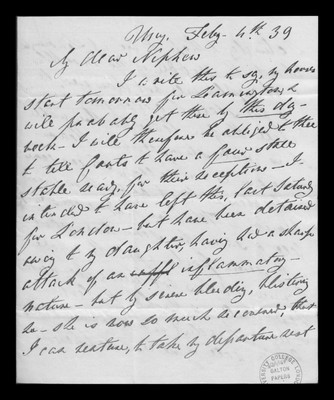 Feby. 4th 39
My dear Nephew
I write this to say, my horses
start tomorrow for Leamington &
will probably get there by this day
week - I will therefore be obliged to thee
to tell to have a four stall
stable ready for their reception - I
intended to have left this, last Saturday
for London - but have been detained
owing to my daughter having had a sharp
attack of an inflammatory
nature - but by severe bleeding, blistering
&c - she is now so much recovered, that
I can venture, to take my departure next
UNIVERSITY COLLEGE LONDON
GALTON
PAPERS